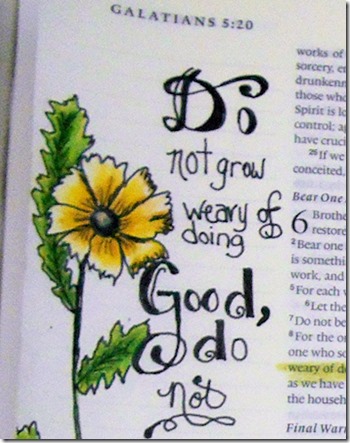 GALATIANS 5:20
Do
not grow
weary of
doing
Good,
do
not
works of
sorcery, en
drunkenn
those who
Spirit is lo
control; ag
have cruci
26 If we
conceited,
Bear One
6 Brothe
restore
2 Bear one
is somethi
work, and
5 For each
6 Let the
7 Do not be
8 For the o
one who so
weary of do
as we have
the househ
Final Warn